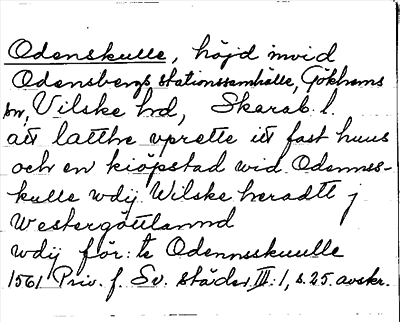 Odenskulle, höjd invid
Odensbergs stationssamhälle, Gökhems
sn, Vilske hd, Skarab. l.
att latthe vprette itt fast huus
och en kiöpstad wid Odennss-
kulle wdij Wilske heradtt j
Westergöttlannd
wdij för: te Odennsskuulle
1561 Priv. f. Sv. städer III: 1, s. 25. avskr.